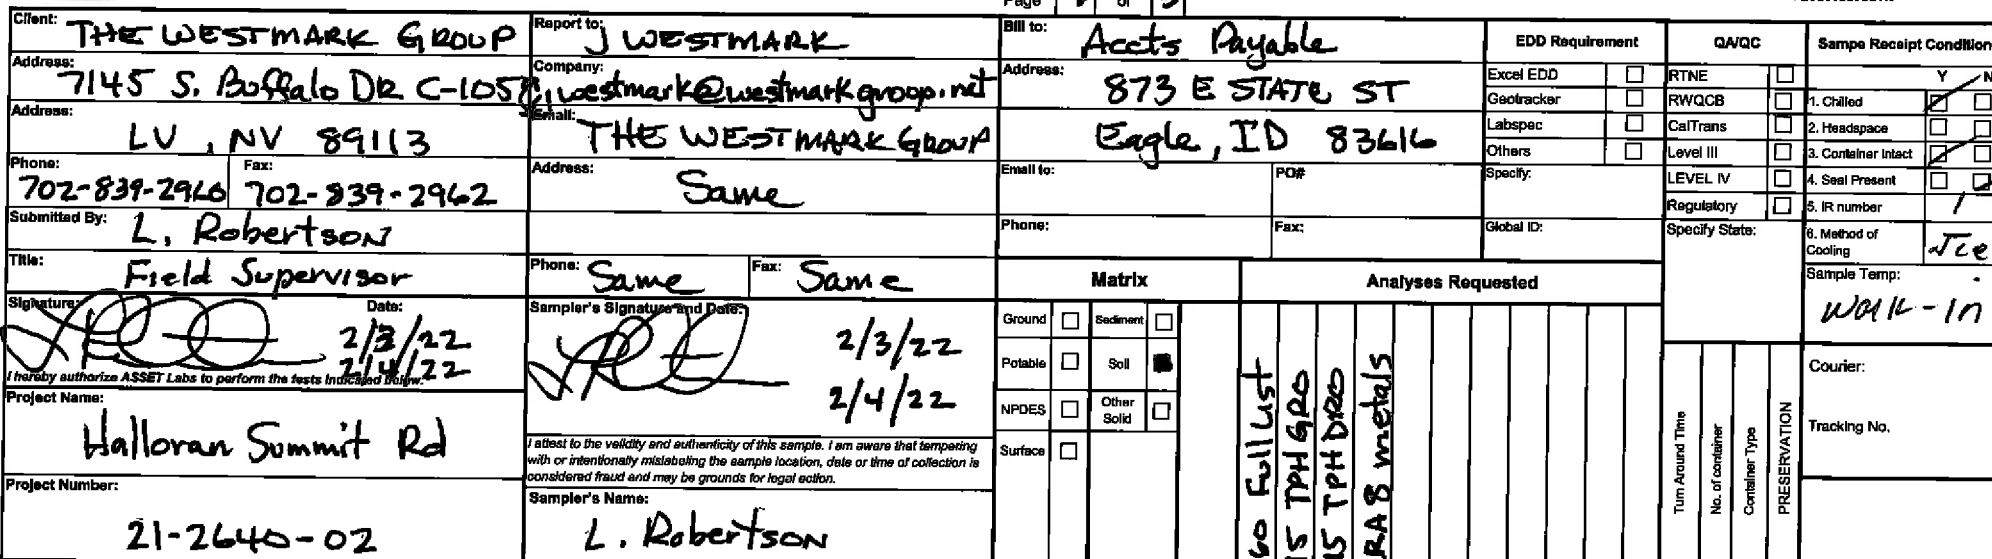 Page of
Client: THE WESTMARK GROUP
Address: 7145 S. Buffalo DR C-105
Address: LV, NV 89113
Phone: 702-839-2960 Fax: 702-839-2962
Submitted By: L. Robertson
Title: Field Supervisor
Signature: Date: 2/3/22
2/4/22
I hereby authorize ASSET Labs to perform the tests indicated below.
Project Name:
Halloran Summit Rd
Project Number:
21-2640-02
Report to: J WESTMARK
Company: westmark@westmarkgroup.net
Email: THE WESTMARK GROUP
Address: Same
Phone: Same Fax: Same
Sampler's Signature and Date: 2/3/22
2/4/22
I attest to the validity and authenticity of this sample. I am aware that tampering
with or intentionally mislabeling the sample location, date or time of collection is
considered fraud and may be grounds for legal action.
Sampler's Name:
L. Robertson
Bill to: Accts Payable
Address: 873 E STATE ST
Eagle, ID 83616
Email to: PO#
Phone: Fax:
Matrix
Ground Sediment
Potable Soil
NPDES Other Solid
Surface
Analyses Requested
60 Full List
15 TPH GRO
15 TPH DRO
RA8 metals
EDD Requirement
Excel EDD
Geotracker
Labspec
Others
Specify:
Global ID:
QA/QC
RTNE
RWQCB
CalTrans
Level III
LEVEL IV
Regulatory
Specify State:
Turn Around Time
No. of container
Container Type
PRESERVATION
Sampe Receipt Condition
Y N
1. Chilled
2. Headspace
3. Container Intact
4. Seal Present
5. IR number 1
6. Method of
Cooling Ice
Sample Temp:
Walk-in
Courier:
Tracking No.